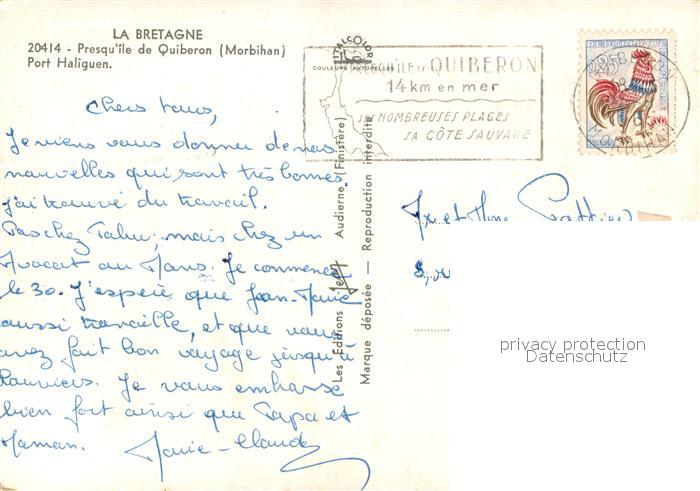 LA BRETAGNE
20414 - Presqu'île de Quiberon (Morbihan)
Port Haliguen.
Chers tous,
Je viens vous donner de nos
nouvelles qui sont très bonnes.
J'ai trouvé du travail.
Pas chez mais chez un
Avocat au Mans. Je commence
le 30. J'espère que Jean-Marie
aussi travaille, et que vous
avez fait bon voyage jusqu'à
Louviers. Je vous embrasse
bien fort ainsi que Papa et
Maman. Marie-Claude
ITALCOLOR
COULEURS
Les Editions Audierne (Finistère)
Marque déposée — Reproduction interdite
QU'ILE DE QUIBERON
14 km en mer
SES NOMBREUSES PLAGES
SA CÔTE SAUVAGE
QUIBERON
MORBIHAN
0,25
Mr et Mme
privacy protection
Datenschutz